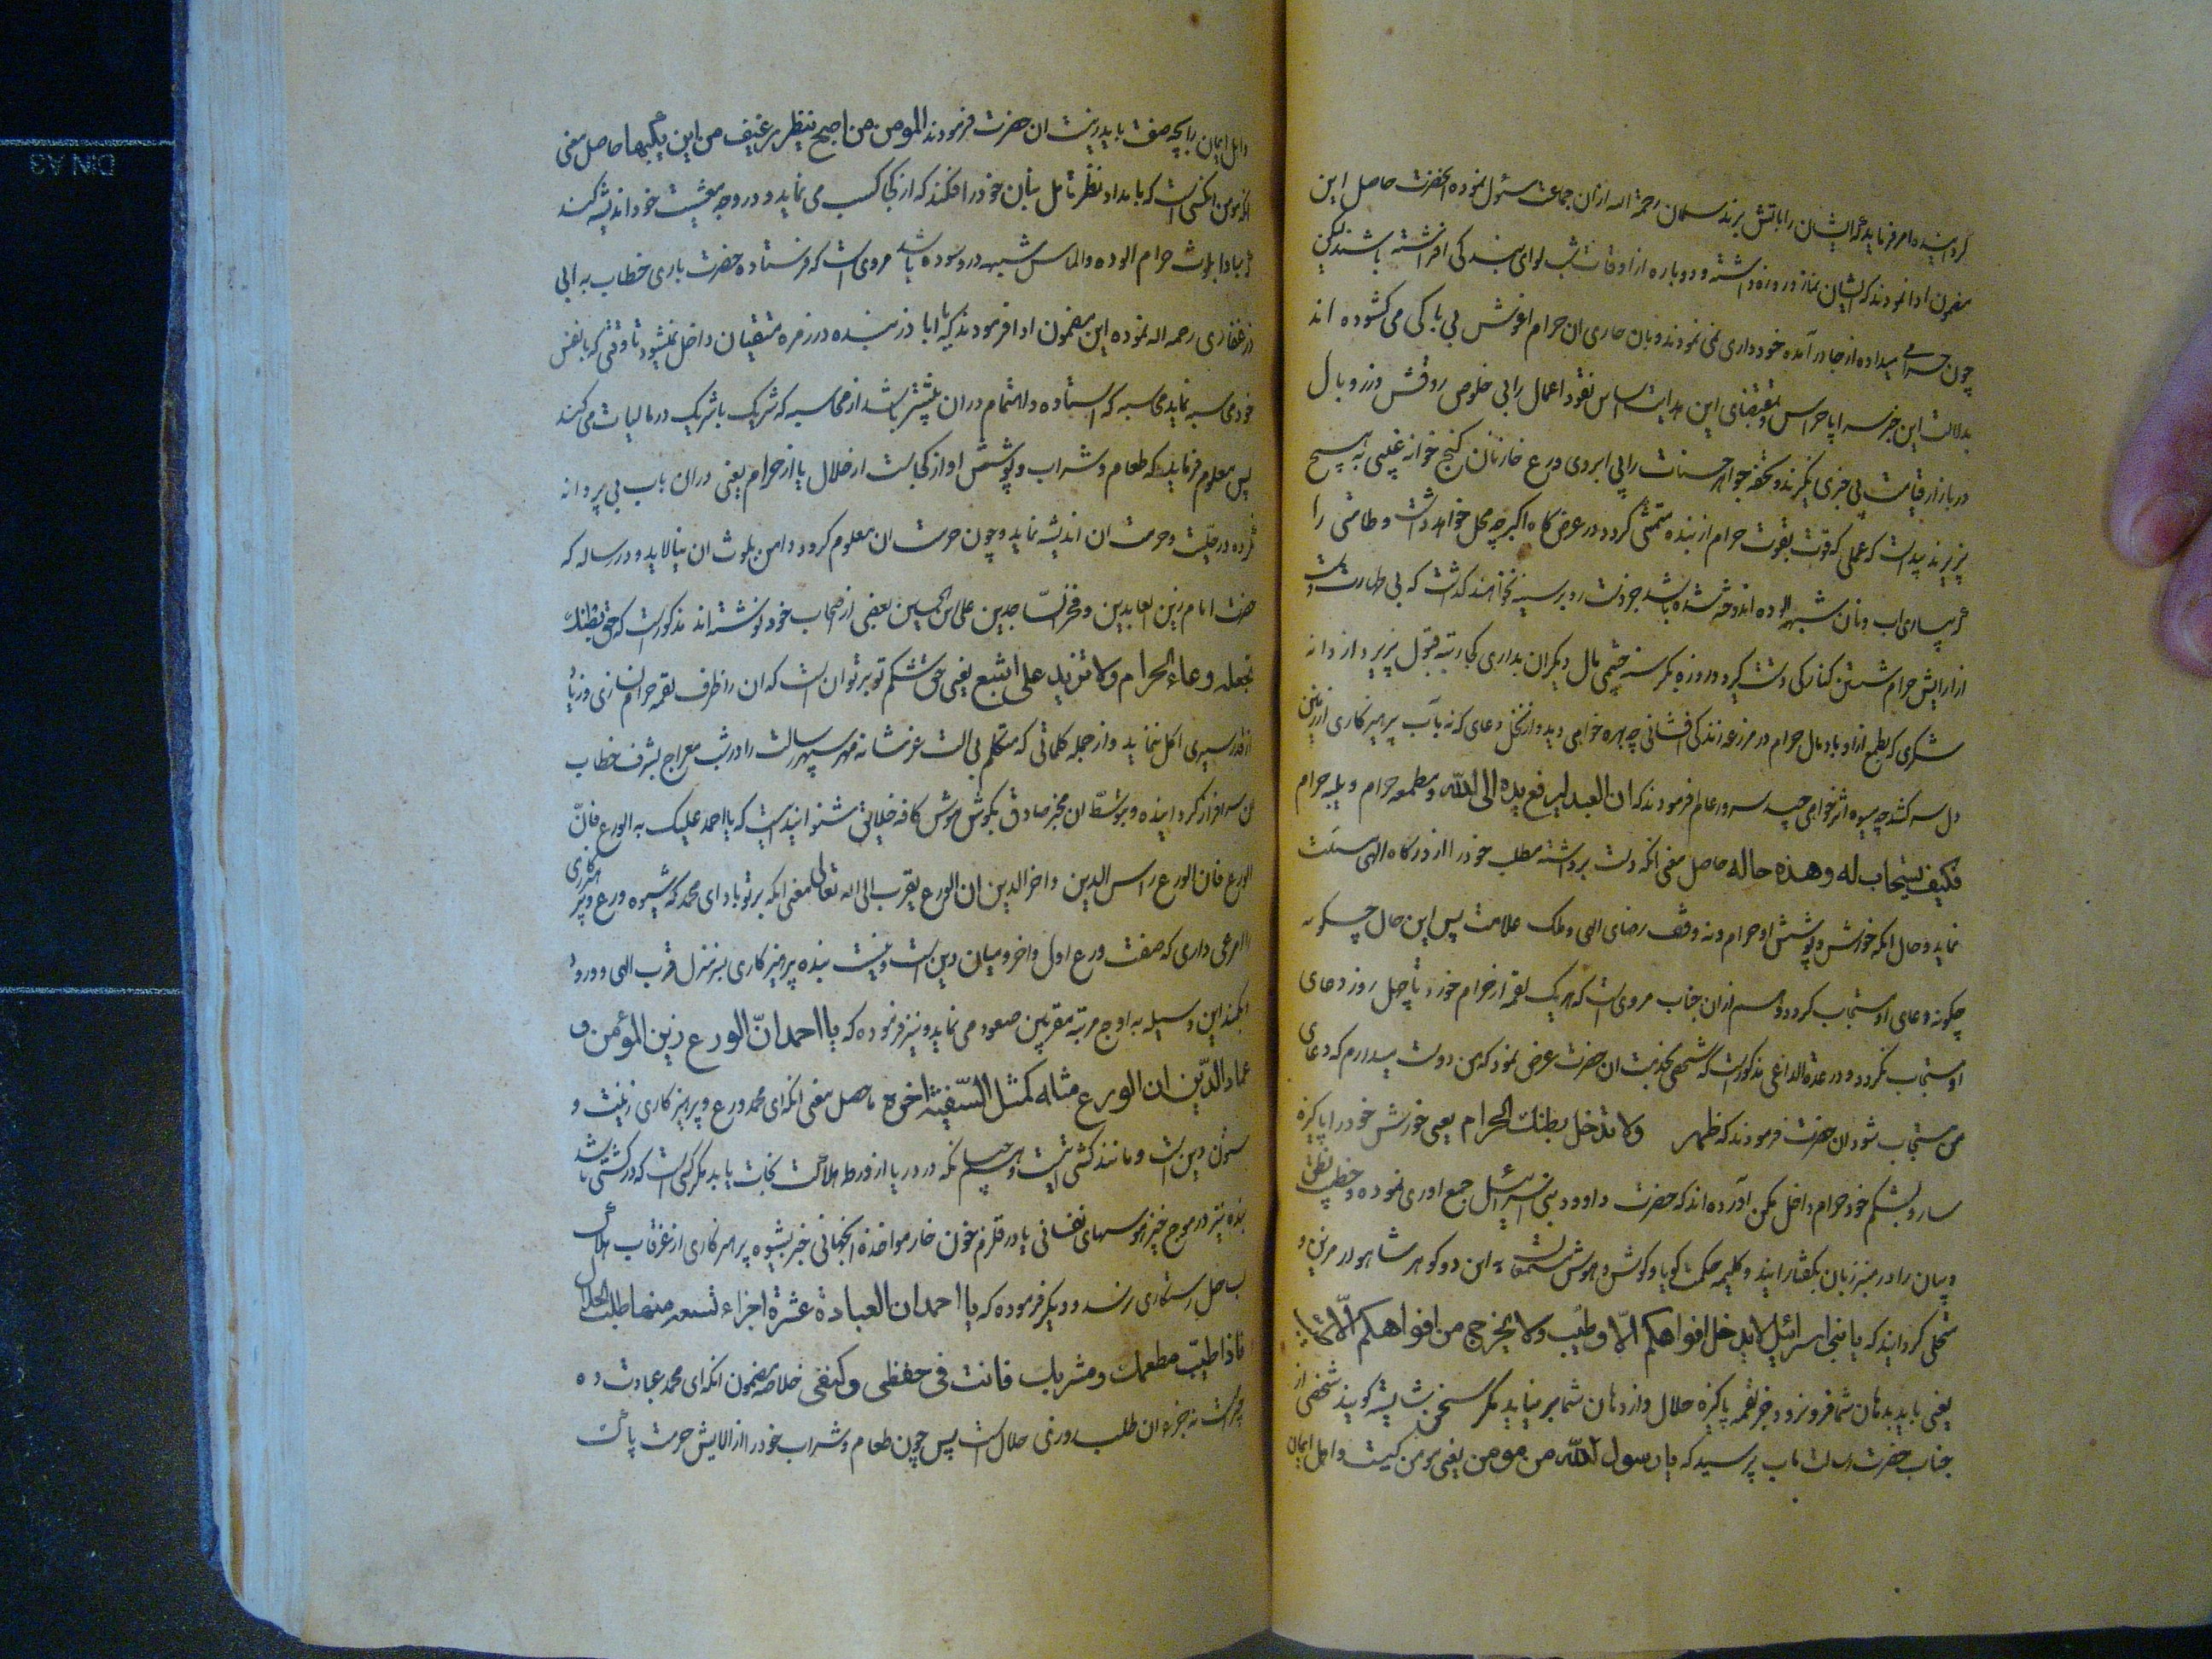 کردانیده امر فرماید که ایشان را باتش برند سلمان رحمة الله ازان جماعت سئول نموده انحضرت حاصل این
مضمون ادا نمودند که ایشان نماز و روزه داشته و دوباره از اوقات شب لوای بندکی افراشته باشند لیکن
چون حرامی میداده از جا در آمده خودداری نمی نمودند و بان حاری ان حرام اغوش بی باکی می کشوده اند
بدلالت این خبر سراپا حراس و بمقتضای این هدایت اساس نقود اعمال را بی خلوص روقش وزر و بال
در بازار قیامت بی خبری نکیرند و تحفه جواهر حسنات را بی ابروی ورع خازنان کنج خوانه غیبی به هیچ
پزیرند پیداست که عملی که قوت بقوت حرام از بنده متمشی کردد در عرض کاه اکبر چه محل خواهد داشت و طاعتی را
که بپساری اب و نان شبهه الوده اندوخته شده باشد جز دست رد بر سینه نخواهند کذاشت که بی طهارت دست
از ارایش حرام شستن کنار کی دست کیرد و روزهٔ کر سنه چشمی مال دیکران بداری کجا رتبه قبول پزیرد از دانه
شکری که بطمع از او باد مال حرام در مزرعه زندکی افشانی چه بهره خواهی دید و از نخل دعای که نه باب پرهیزکاری از زمین
دل سر کشد چه میوه اثر خواهی چید سرور عالم فرمودند که ان العبد لیرفع یده الی الله و مطعمه حرام و ملبسه حرام
فکیف یستجاب له و هذه حاله حاصل معنی انکه دست برداشته مطلب خود را از درکاه الهی مسئلت
نماید و حال انکه خورش و پوشش او حرام و نه وقف رضای الهی و ملک علامت پس این حال چکونه
چکونه دعای او مستجاب کردد و هم ازان جناب مروی است که هر یک لقمه از حرام خورد تا چهل روز دعای
او مستجاب نکردد و در عدة الداعی مذکور است که شخصی بخدمت ان حضرت عرض نمود که من دوست میدارم که دعای
من مستجاب شود ان حضرت فرمودند که طهر ولا تدخل بطنک الحرام یعنی خورش خود را پاکیزه
ساز و بشکم خود حرام داخل مکن اورده اند که حضرت داوود بنی اسرائیل جمع اوری نموده و خطیب نطق
و بیان را در منبر زبان بکفتار اید و کلیمه حکمت کویا و کوش و هوش مستمعان به این دو کوهر شاهوار مزین و
متحلی کردانید که یا بنی اسرائیل لا یدخل افواهکم الا و طیب ولا یخرج من افواهکم الا
یعنی باید بدهان شما فرو نرود جز لقمه پاکیزه حلال و از دهان شما بر نیاید مکر سخن شایسته کویند شخصی از
جناب حضرت رسالت ماب پرسید که یا رسول الله من مومن یعنی مومن کیست و اهل ایمان
و اهل ایمان را بچه صفت باید زیست ان حضرت فرمودند المومن من اصبح ینظر برغیف من این یکسبها حاصل معنی
انکه مومن انکسی است که بامداد نظر تامل بنان خود را افکند که از کجا کسب می نماید و در وجه معیشت خود اندیشه کند
که مبادا بلوث حرام الوده و الماس شبهه در و سوده باشد مروی است که فرستاده حضرت باری خطاب به ابی
ذر غفاری رحمه الله نموده این مضمون ادا فرمودند که یا ابا ذر بنده در زمره متقیان داخل نمیشود تا وقتی که با نفس
خود محاسبه نماید محاسبه که استاده و اهتمام دران بیشتر باشد از محاسبه که شریک با شریک در مالیات می کند
پس معلوم فرماید که طعام و شراب و پوشش او از کجاست از حلال یا از حرام یعنی دران باب بی پروا نه
کرده در حلیت و حرمت ان اندیشه نماید و چون حرمت ان معلوم کرود دامن بلوث ان نیالاید و در رساله که
حضرت امام زین العابدین و فخر الساجدین علی بن الحسین بعضی از اصحاب خود نوشته اند مذکور است که حق بطنک
تجعله وعاء الحرام ولا تزید علی الشبع یعنی حق شکم تو بر تو ان است که ان را ظرف لقمه حرام نسازی و زیاده
از قدر سیری اکل ننماید و از جمله کلماتی که متکلم بی الت عز شانه مهر سپهر رسالت را در شب معراج بشرف خطاب
ان سرافراز کردانیده و بتوسط ان مخبر صادق بکوش هوش کافه خلایق شنوانیده است که یا احمد علیک به الورع فان
الورع فان الورع راس الدین و اخر الدین ان الورع یقرب الی الله تعالی معنی انکه بر تو باد ای محمد که شیوه ورع و پرهیزکاری
را مرعی داری که صفت ورع اول و اخر و میان دین است و نیست بنده پرهیزکاری بسر منزل قرب الهی و ورود
ا بکمند این وسیله به اوج مرتبه مقربین صعود می نماید و نیز فرموده که یا احمد ان الورع زین المؤمن و
عماد الدین ان الورع مثله کمثل السفینة اخره حاصل معنی انکه ای محمد ورع و پرهیزکاری زینت و
ستون دین است و مانند کشتی است و هر چیست انکه در دریا از ورطه هلاکت نجات یابد مکر کسی است که در کشتی باشد
بنده نیز در موج خیز هوسهای نفسانی یا در قلزم خون خار مواخذه انجهانی جز بشیوه پرهیزکاری از غرقاب هلاک
ب حل رستکاری نرسد و دیکر فرموده که یا احمد ان العبادة عشرة اجزاء تسعه منها طلب الحلال
فاذا طیبت مطعمک و مشربک فانت فی حفظی و کنفی خلاصه مضمون انکه ای محمد عبادت ده
جزء است نه جزء ان طلب روزی حلال است پس چون طعام و شراب خود را از الایش حرمت پاک